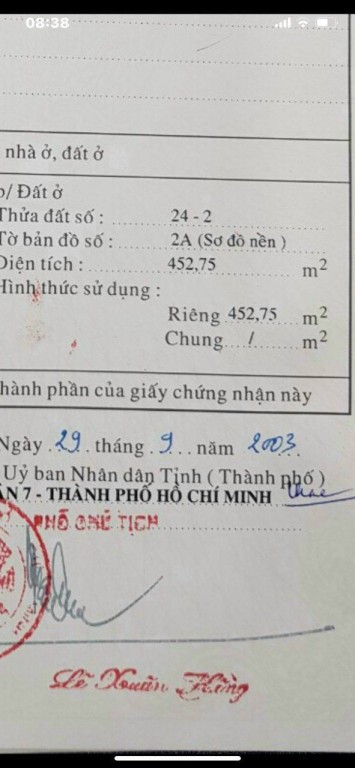 08:38
nhà ở, đất ở
b/ Đất ở
Thửa đất số : 24 - 2
Tờ bản đồ số : 2A (Sơ đồ nền )
Diện tích : 452,75 m2
Hình thức sử dụng :
Riêng 452,75 m2
Chung / m2
thành phần của giấy chứng nhận này
Ngày 29 tháng 9 năm 2003
Uỷ ban Nhân dân Tỉnh ( Thành phố )
ẬN 7 - THÀNH PHỐ HỒ CHÍ MINH
PHÓ CHỦ TỊCH
Lê Xuân Hằng